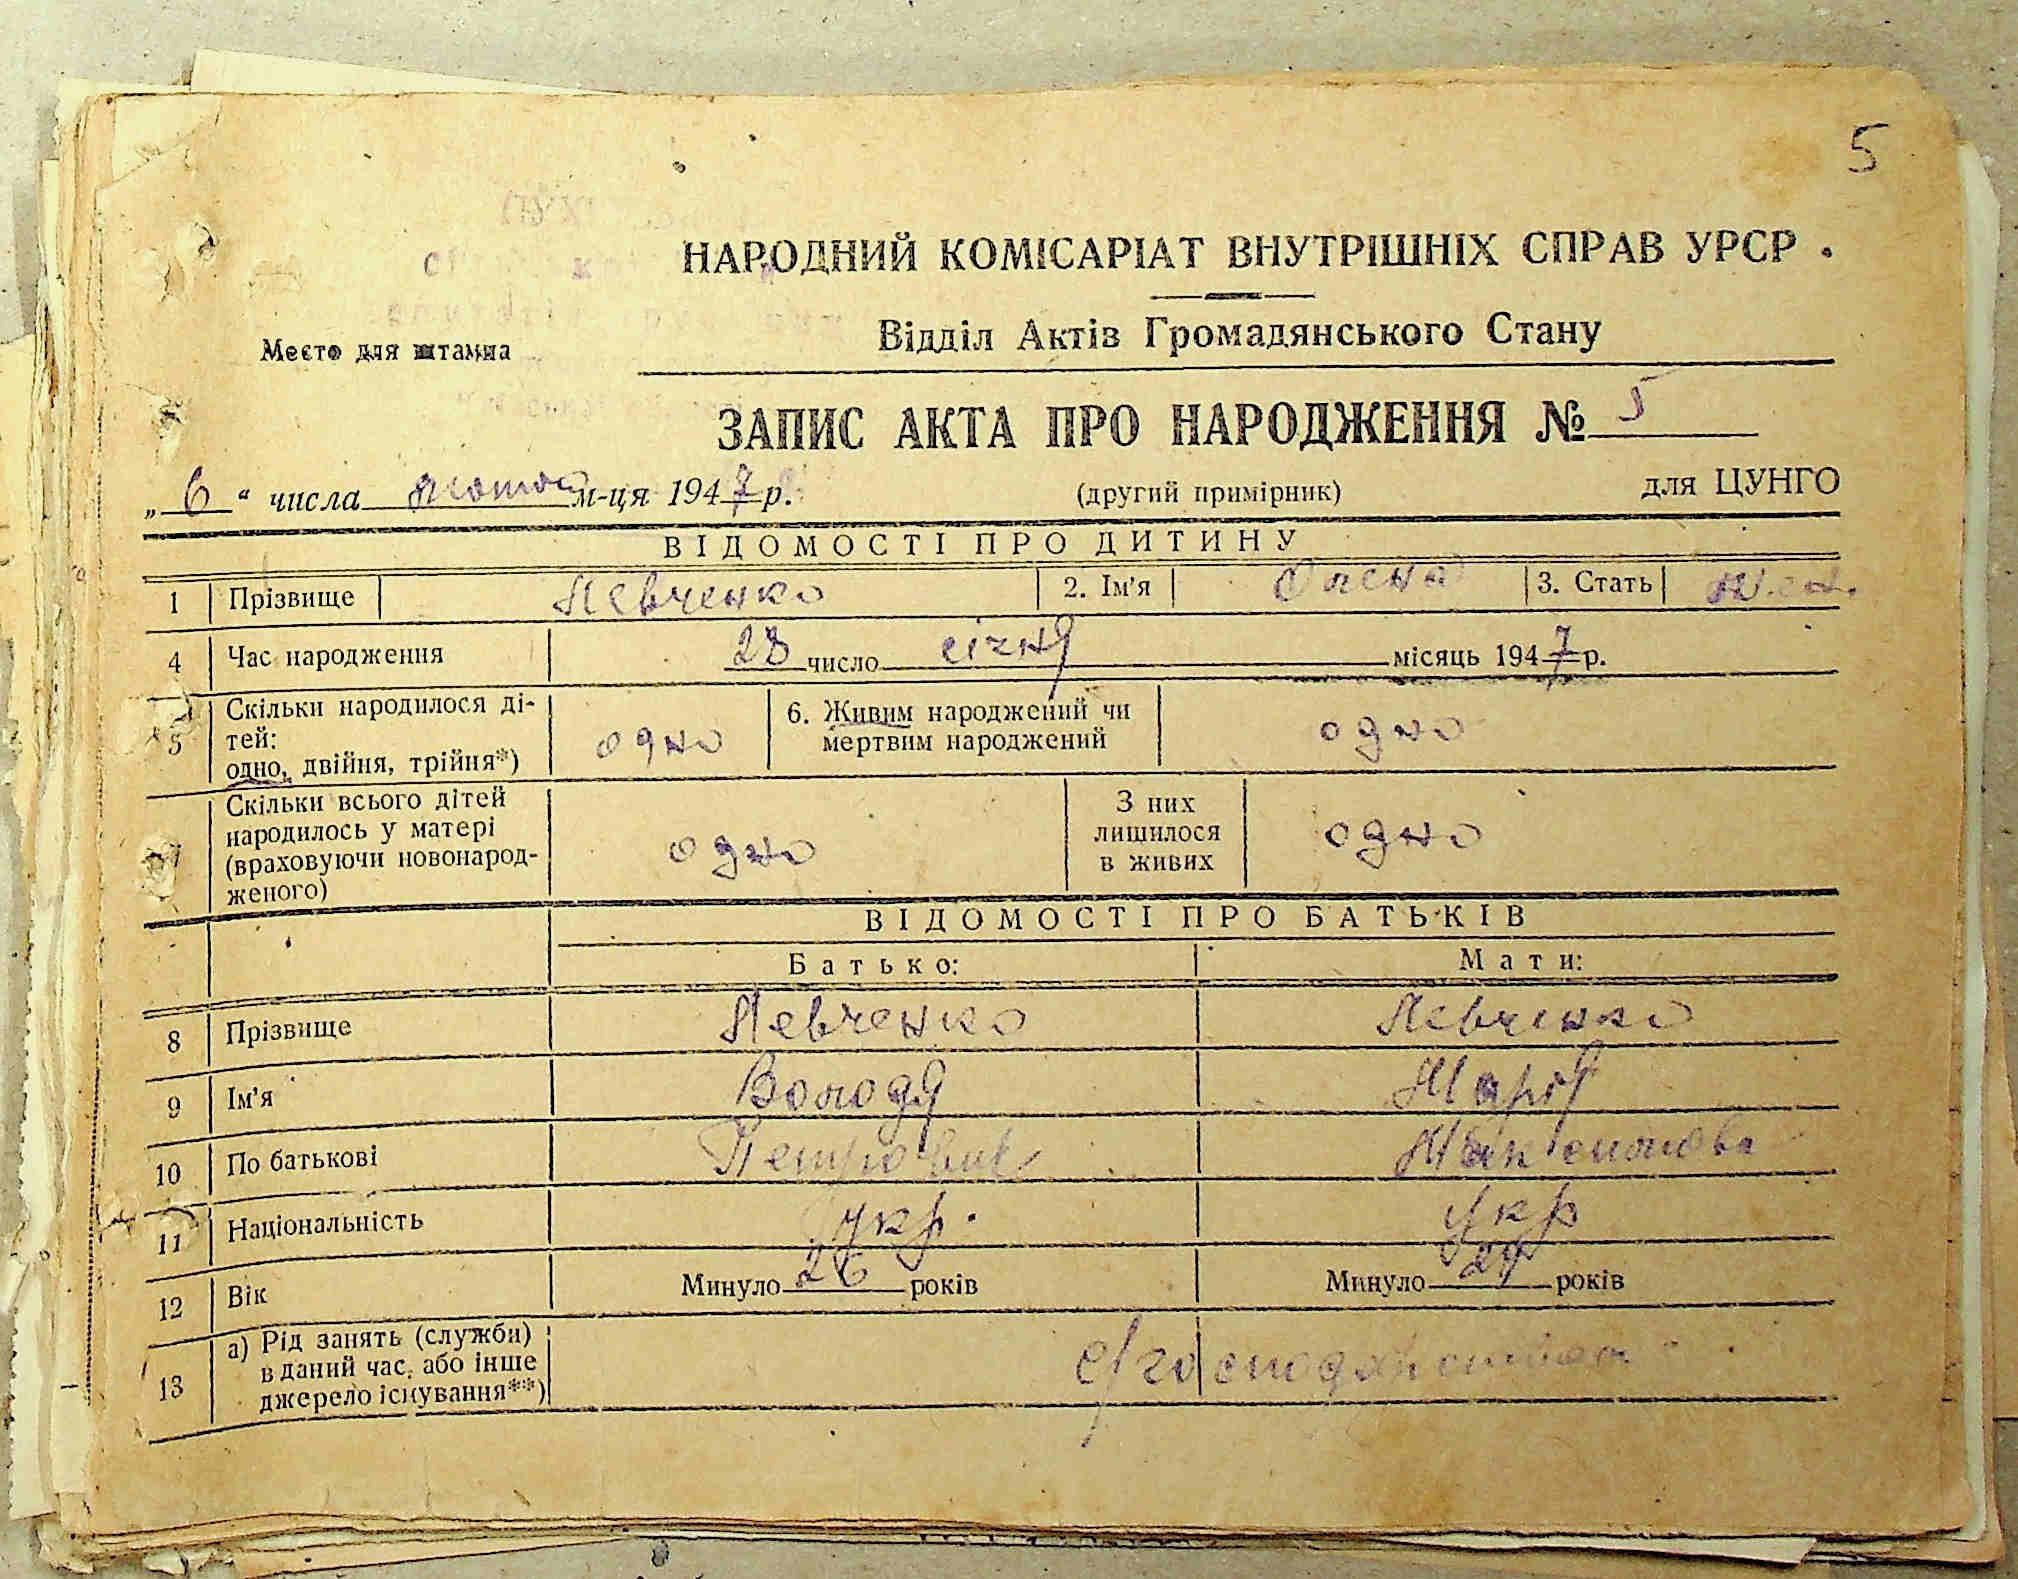 5
НАРОДНИЙ КОМІСАРІАТ ВНУТРІШНІХ СПРАВ УРСР
Відділ Актів Громадянського Стану
Место для штампа
ЗАПИС АКТА ПРО НАРОДЖЕННЯ № 5
„ 6 “ числа лютого м-ця 1947 р. (другий примірник) для ЦУНГО
ВІДОМОСТІ ПРО ДИТИНУ
1 Прізвище Левченко 2. Ім'я Олена 3. Стать жен.
4 Час народження 28 число січня місяць 1947 р.
5 Скільки народилося ді-
тей:
одно, двійня, трійня*) одно 6. Живим народжений чи
мертвим народжений одно
7 Скільки всього дітей
народилось у матері
(враховуючи новонарод-
женого) одно З них
лишилося
в живих одно
ВІДОМОСТІ ПРО БАТЬКІВ
Батько: Мати:
8 Прізвище Левченко Левченко
9 Ім'я Володя Марія
10 По батькові Петрович
11 Національність укр. укр
12 Вік Минуло 26 років Минуло років
13 а) Рід занять (служби)
в даний час, або інше
джерело існування**)